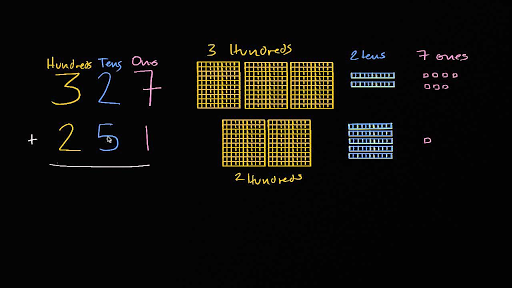 Hundreds Tens Ones
3 Hundreds
2 tens
7 ones
3 2 7
+ 2 5 1
2 Hundreds